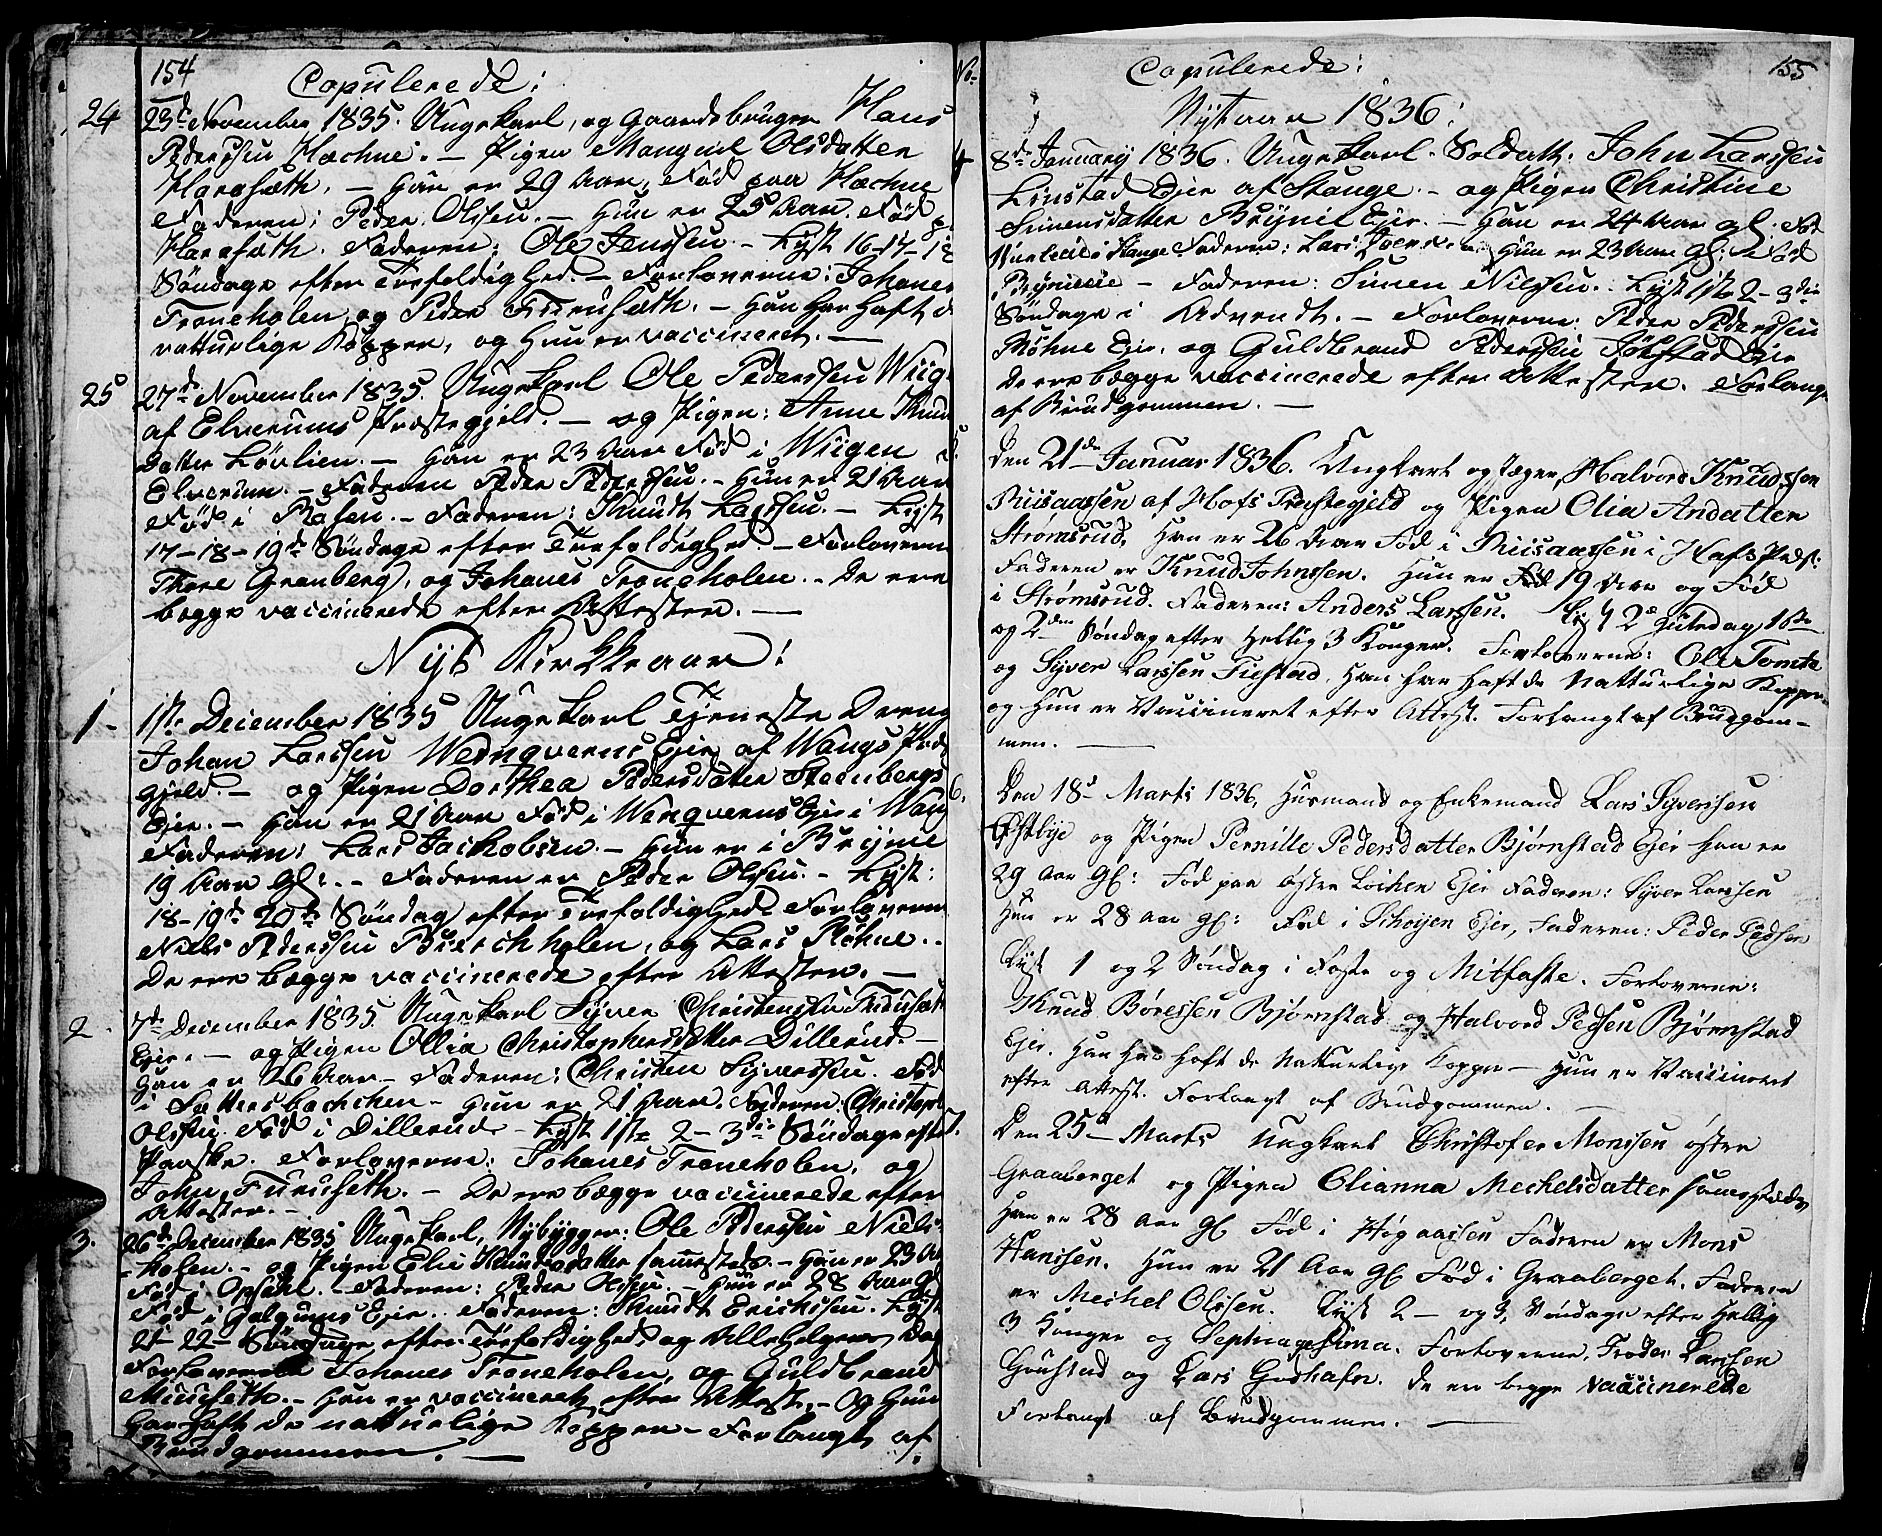 154
Copulerede:
24
23d November 1835. Ungekarl, og Gaardsbruger Hans
Pederssen Hæchne. — Pigen Mangnil Olsdatter
Harasæth. — Han er 29 Aar, Fød paa Hæchne
Faderen: Peder Olssen. — Hun er 25 Aar. Fød
Harasæth. Faderen: Ole Jenssen. — Lyst 16-17-18
Søndage efter Trefoldighed. — Forloverne: Johanes
Troneholen, og Peder Furusæth. — Han Har Haft d
natturlige Kopper, og Hun er vaccineret. —
25
27de November 1835. Ungekarl Ole Pederssen Wiige
af Elverums Præstegjeld. — og Pigen: Anne Knud
Datter Løvlien. — Han er 23 Aar Fød i Wiigen
Elverum. — Faderen Peder Pederssen. — Hun er 21 Aar
Fød i Rasen. — Faderen: Knudt Larssen. — Lyst
17-18-19de Søndage efter Trefoldighed. — Forloverne
Thore Granberg, og Johanes Troneholen. — De ere
begge vaccinerede efter Attester. —
Nyt Kirkkeaar:
1-
1ste December 1835 Ungekarl Tjeneste Dreng
Johan Larssen Wednqverns Ejer af Wangs Præste
gjeld. — og Pigen Dorthea Pedersdatter Steenbergs
Ejer. — Han er 21 Aar Fød i Wenqverns Ejer i Wang
Faderen: Lars Jachobsen. — Hun er i Bryne
19 Aar gl: — Faderen er Peder Olssen. — Lyst:
18-19de 20de Søndag efter Trefoldighed. Forloverne
Niels Pederssen Bierchholen, og Lars Røhne.
De ere begge vaccinerede efter Attester. —
2
7de December 1835. Ungekarl Syver Christenssen Furuset
Ejer. — og Pigen Ollia Christophersdatter Dillerud. —
Han er 26 Aar — Faderen: Christen Syverssen. Fød
i Sættesbachchen — Hun er 21 Aar. Faderen: Christoph
Olssen Fød i Dillerud. — Lyst 1ste 2 — 3die Søndage efter
Paaske. Forloverne: Johanes Troneholen, og
John Furusseth. — De ere begge vaccinerede efter
Attester. —
3.
26d December 1835 Ungekarl, Nybygger: Ole Pederssen Niels-
holen. — og Pigen Elie Knudsdatter sammesteds. — Han er 23 Aar
Fød i Opsahl. — Faderen: Peder Olssen. — Hun er 28 Aar gl
Fød i Galgums Ejer. Faderen: Knudt Erichssen. Lyst
21-22- Søndage efter Trefoldighed og Allehelgens Dag
Forloverne Johanes Troneholen, og Guldbrand
Muuseth. — Han er vaccineret efter Attest, — Og Hun
Har Haft de natturlige Kopper — Forlangt af
Brudgommen. —
No
155
Copulerede:
Nyt aar 1836:
4
8de January 1836. Ungekarl. Soldatt: John Larssen
Linstad Ejer af Stange — og Pigen Christine
Simensdatter Brynie Ejer. — Han er 24 Aar gl. Fød
i Stange Faderen: Lars Hun er 23 Aar gl: Fød
Brynieeie — Faderen: Simen Nilssen. Lyst 1ste 2 — 3die
Søndage i Advendt. — Forloverne: Peder Pederssen
Røhne Ejer, og Guldbrand Pederssen Jølstad Ejer
De ere begge vaccinerede efter Attester. Forlangt
af Brudgommen. —
5.
Den 21de Januar 1836. Ungkarl og Jæger, Halvord Knudssen
Riisaassen af Hofs Præstegjeld og Pigen Olia Andatter
Strømsrud, Han er 26 Aar Fød i Riisaassen i Hofs Præst:
Faderen er Knud Johnssen. Hun er 19 Aar og Fød
i Strømsrud. Faderen: Anders Larssen. Lyst 2d Juledag 1ste
og 2den Søndag efter Hellig 3 Konger. Forloverne: Ole Tomte
og Syver Larssen Fiestad, Han har Haft de Natturlige Kopper
og Hun er Vaccineret efter Attest. Forlangt af Brudgom-
men. —
6.
Den 18d Marts 1836, Husmand og Enkemand Lars Syverssen
Østbye og Pigen Pernille Pedersdatter Bjørnstad Ejer Han er
29 Aar gl: Fød paa østre Løchen Ejer Faderen: Syver Larssen
Hun er 28 Aar gl: Fød i Schøyen Ejer, Faderen: Peder Pedsen
Lyst 1 og 2 Søndag i Faste og Mitfaste. Forloverne:
Knud Børessen Bjørnstad og Halvord Pedsen Bjørnstad
Ejer. Han Har Haft de Natturlige Kopper — Hun er Vaccineret
efter Attest. Forlangt af Brudgommen. —
7.
Den 25d Marts Ungkarl Christofer Monssen østre
Graaberget og Pigen Olianna Mechelsdatter sammesteds
Han er 28 Aar gl Fød i Høgaassen Faderen er Mons
Hanssen. Hun er 21 Aar gl Fød i Graaberget. Faderen
er Mechel Olssen. Lyst 2 — og 3, Søndage efter Hellig
3 Konger og Septuagesima. Forloverne, Froder Larssen
Grustad og Lars Godhafn. De ere begge Vaccinerede
Forlangt af Brudgommen. —